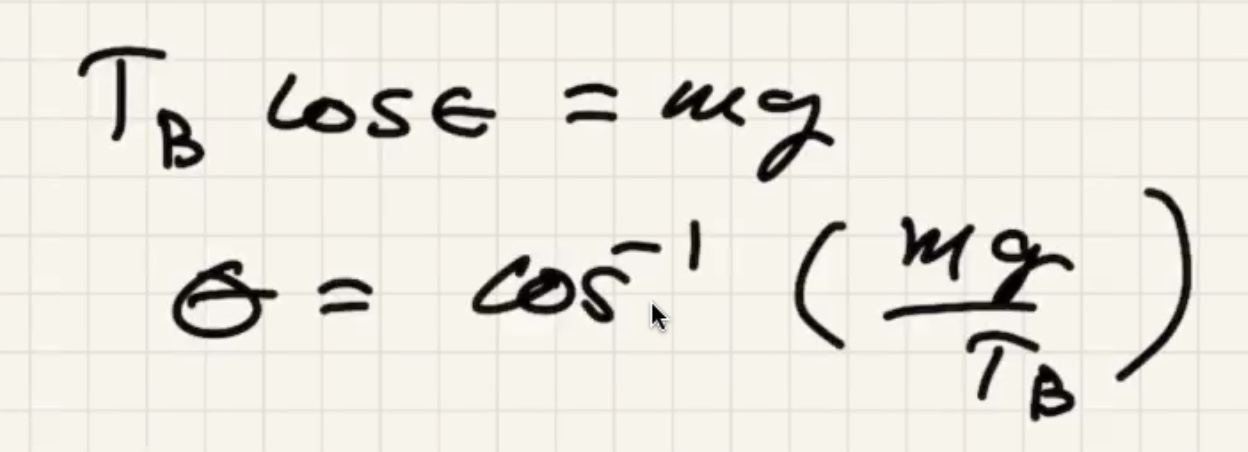 T_B cosθ = mg
θ = cos⁻¹ (mg/T_B)